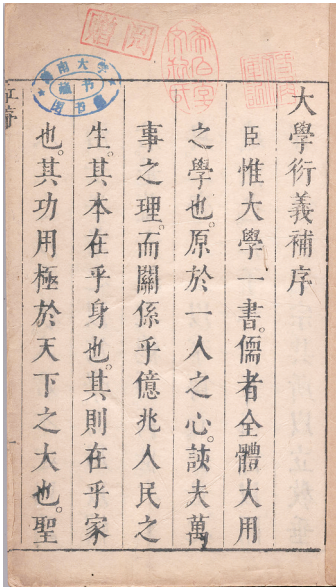 大學衍義補序
臣惟大學一書。儒者全體大用
之學也。原於一人之心。該夫萬
事之理。而關係乎億兆人民之
生。其本在乎身也。其則在乎家
也。其功用極於天下之大也。聖